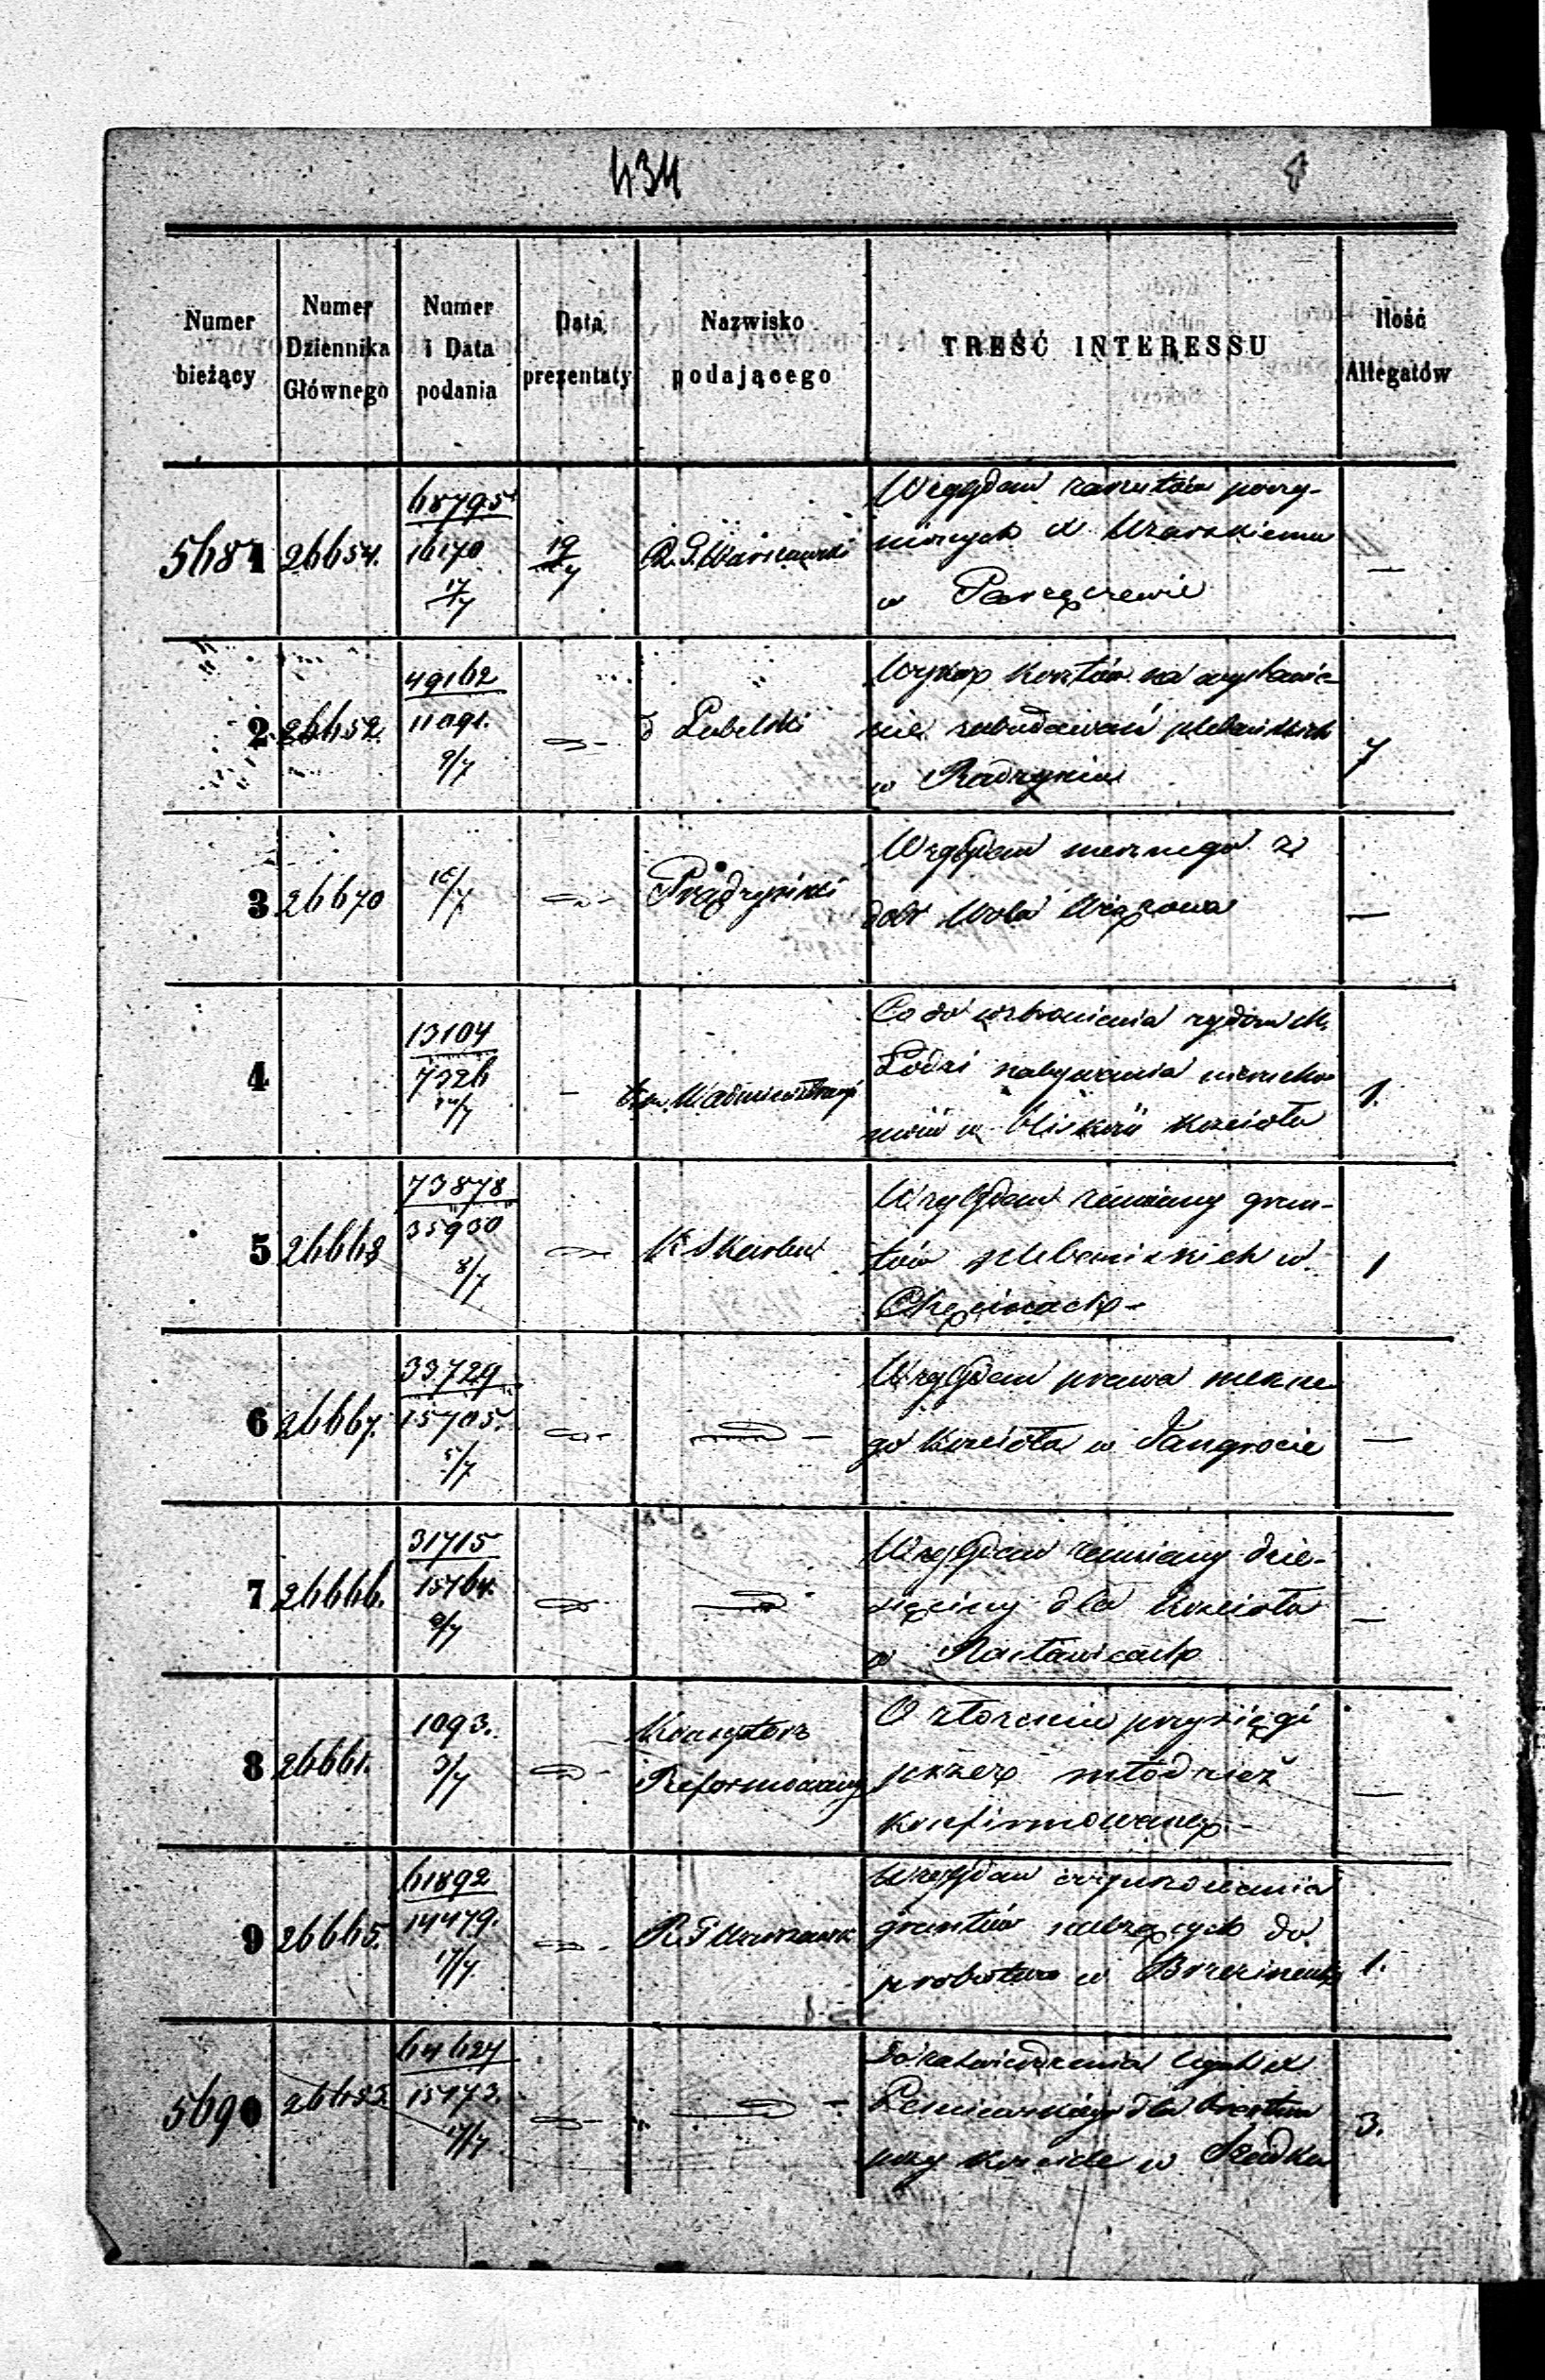 434
Numer bieżący
Numer Dziennika Głównego
Numer i Data podania
Data prezentaty
Nazwisko podającego
TREŚĆ INTERESSU
Ilość Allegatów
5681 26654. 68795 16170 17/7 19/7 R. G. Warszawski
Względem zarzutów poczy-
nionych X
w Parzęczewie
—
2 26652. 49162 11091. 9/7 d Lubelski
kosztów na wystawie-
nie zabudowań plebańskich
w Radzyniu
7
3 26670 16/7 Prądzyński
Względem mesznego z
dóbr Wola Wiązowa
—
4 13104 7326 -
Co do wzbronienia żydom M.
Łodzi nabywania nierucho-
mości w bliskości kościoła
1.
5 26668 73878 35930 8/7 K. Skarbu
Względem zamiany grun-
tów plebańskich w
Chęcinach -
1
6 26667. 33729 15705. 5/7
Względem prawa meszne-
go kościoła w Tangrocie
—
7 26666. 31715 15764. 9/7
Względem zamiany dzie-
sięciny dla kościoła
w Racławicach
—
8 26661. 1093. 3/7 Konsystorz
Reformowany
O złożeniu przysięgi
przez młodzież
konfirmowaną -
—
9 26665. 61892 14479. 17/7 R. G. Warszawsk
Względem
gruntów należących do
probostwa w
1.
5690 64627 15173. 17/7
Do zatwierdzenia legat X
dla bractwa
przy kościele w Szadku
3.